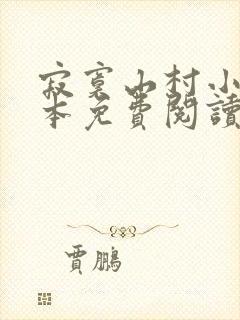 寂寞山村小
本免費閱讀
賈鵬